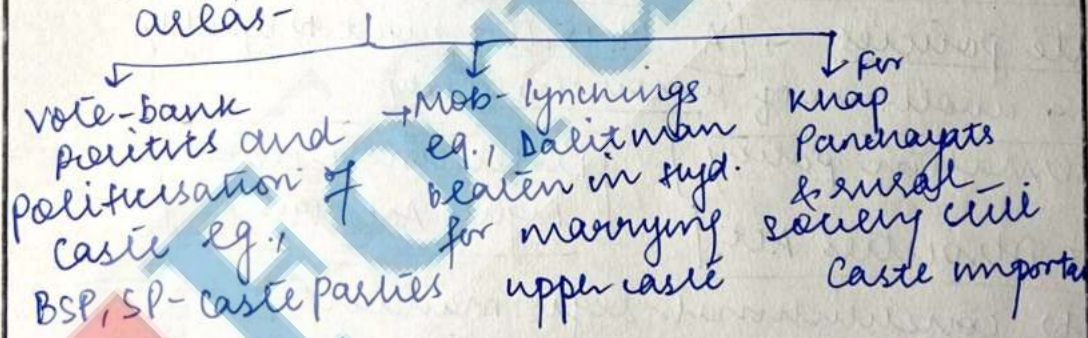 areas-
Vote-bank
politics and
politicisation of
caste eg.,
BSP, SP-caste parties
→ Mob-lynchings
eg., Dalit man
beaten in hyd.
for marrying
upper caste
for
Khap
Panchayats
& rural
society still
caste importa